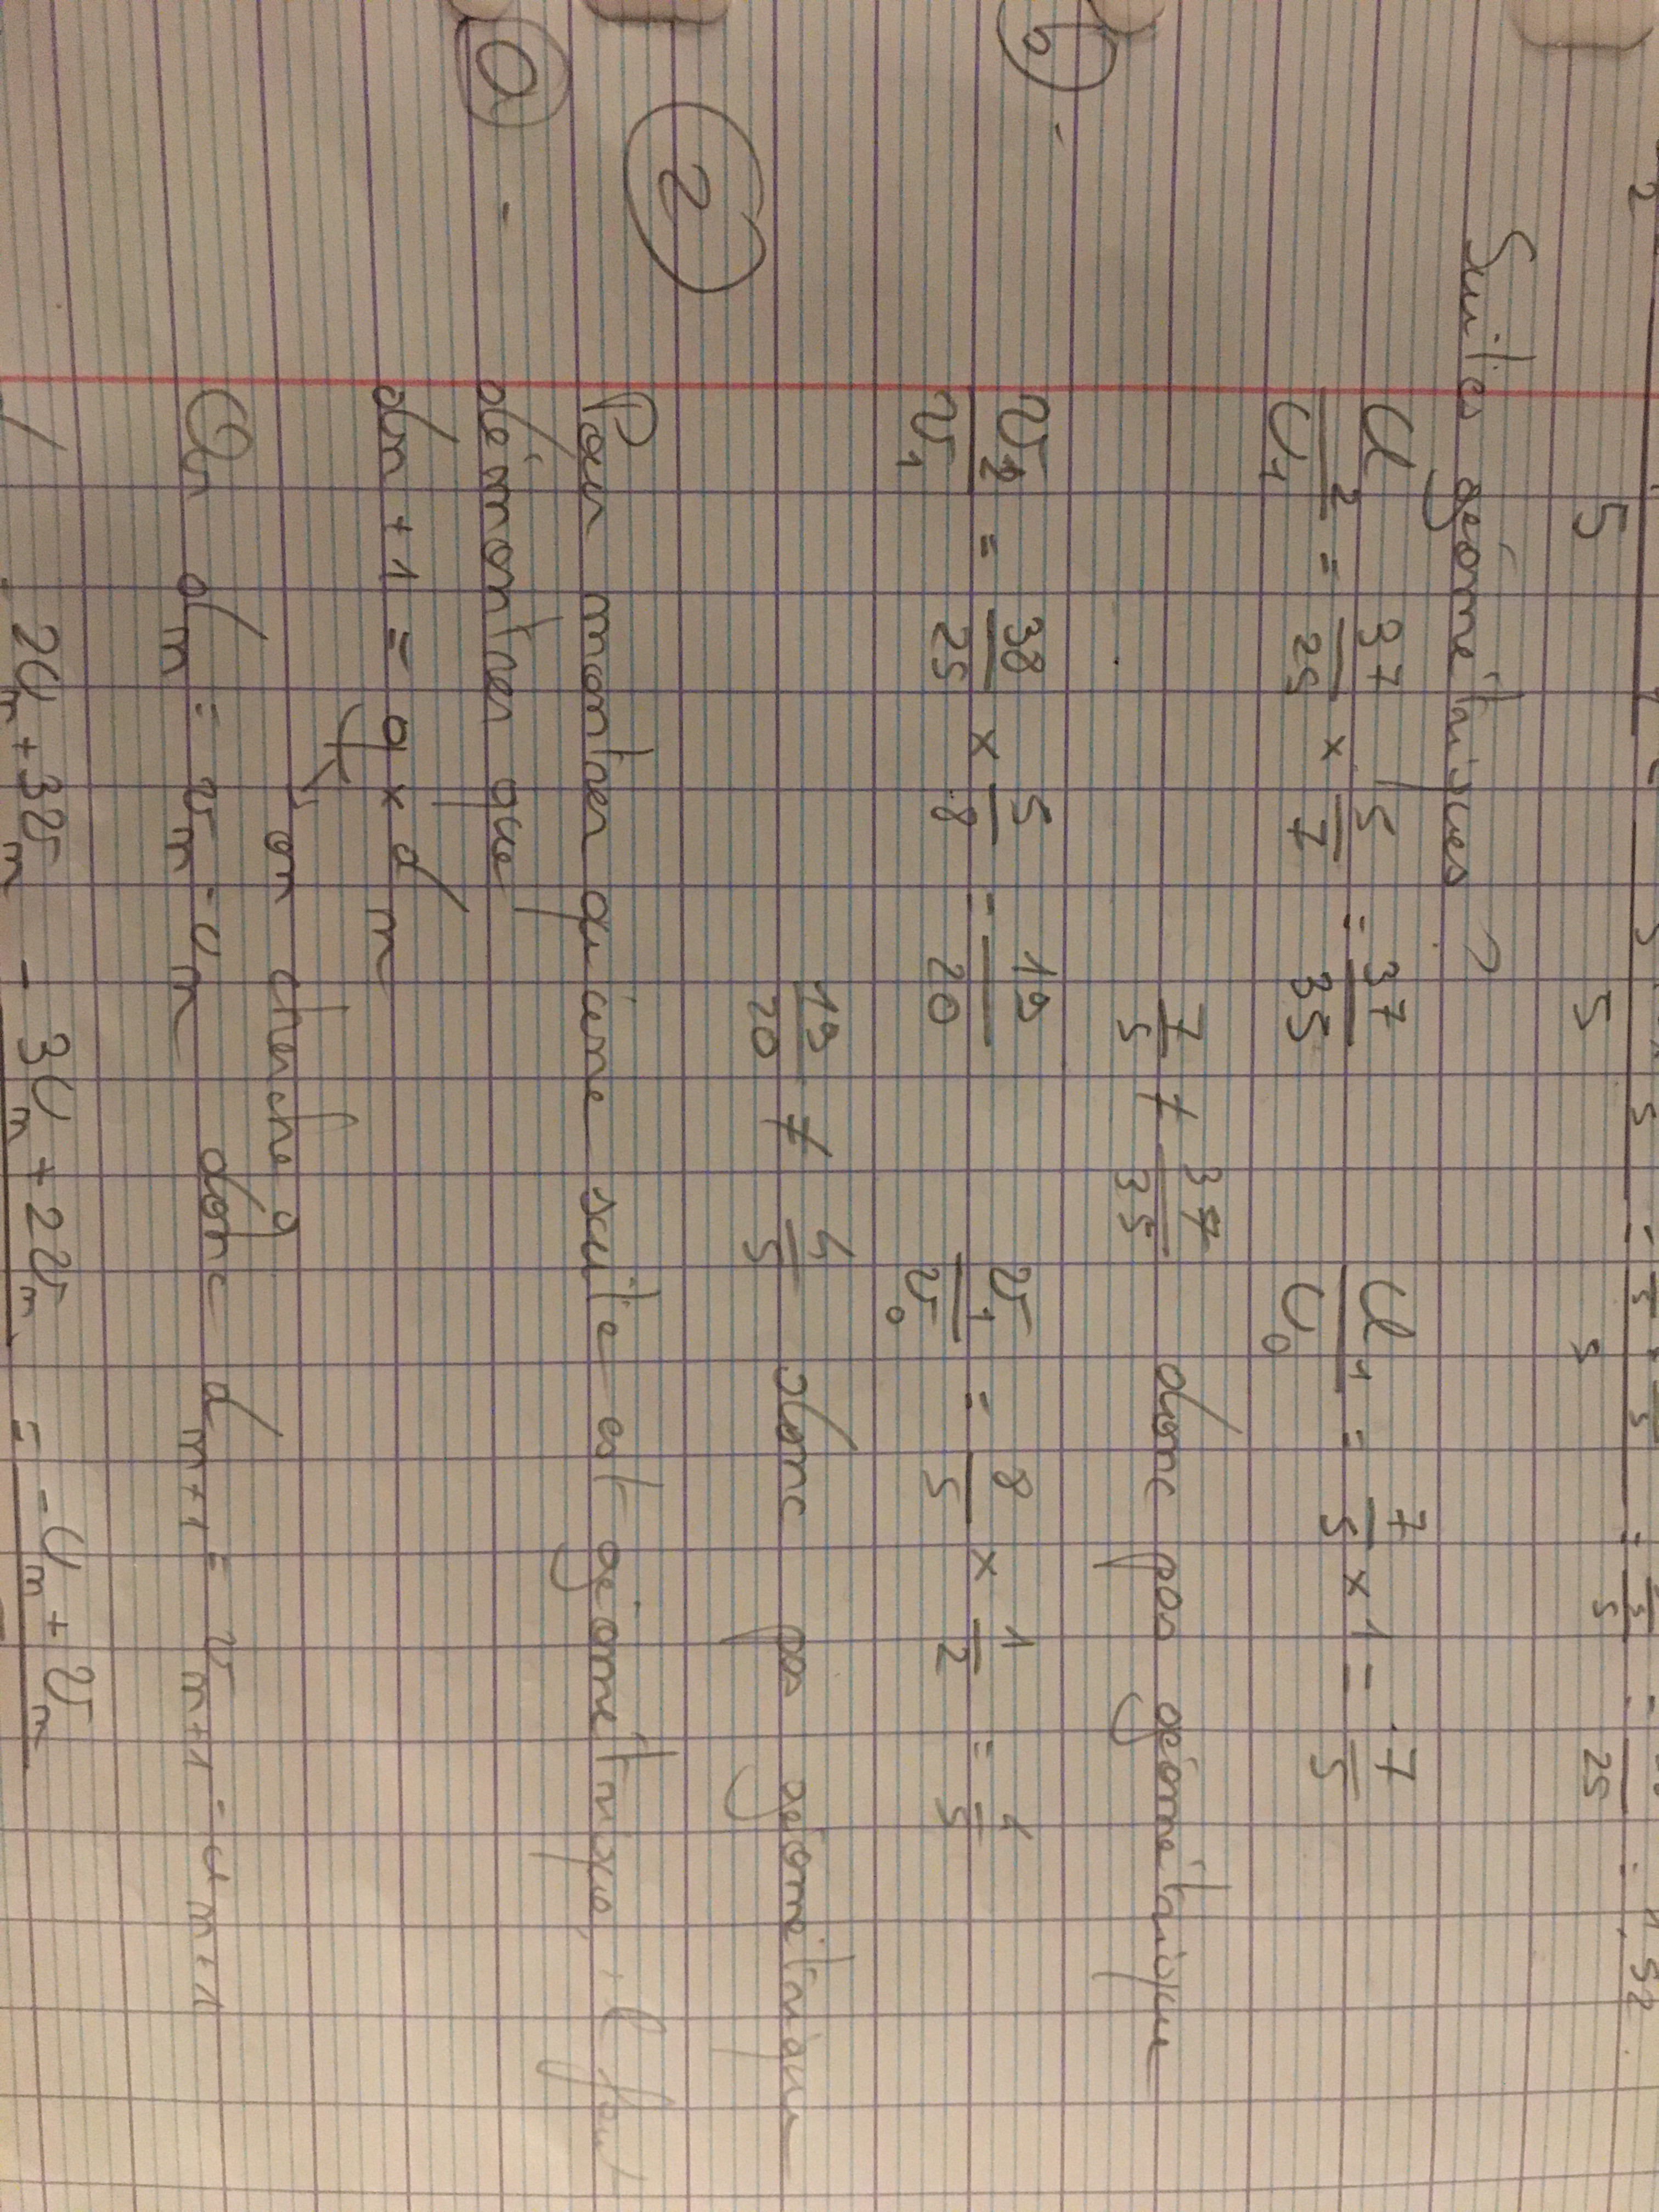 Suites géométriques ?
U2/U1 = 37/25 × 5/7 = 37/35    U1/U0 = 7/5 × 1 = 7/5
7/5 ≠ 37/35 donc pas géométrique
b) -
V2/V1 = 38/25 × 5/8 = 19/20    V1/V0 = 8/5 × 1/2 = 4/5
19/20 ≠ 4/5 donc pas géométrique
2
Pour montrer qu'une suite est géométrique, il faut
a - démontrer que
dn+1 = q × dn
on cherche q
Or dn = vn - un donc dn+1 = vn+1 - un+1
2Un + 3Vn - 3Un + 2Vn = -Un + Vn